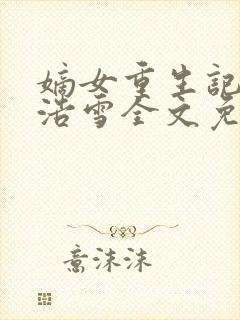 嫡女重生記
浩雪全文免
意沫沫